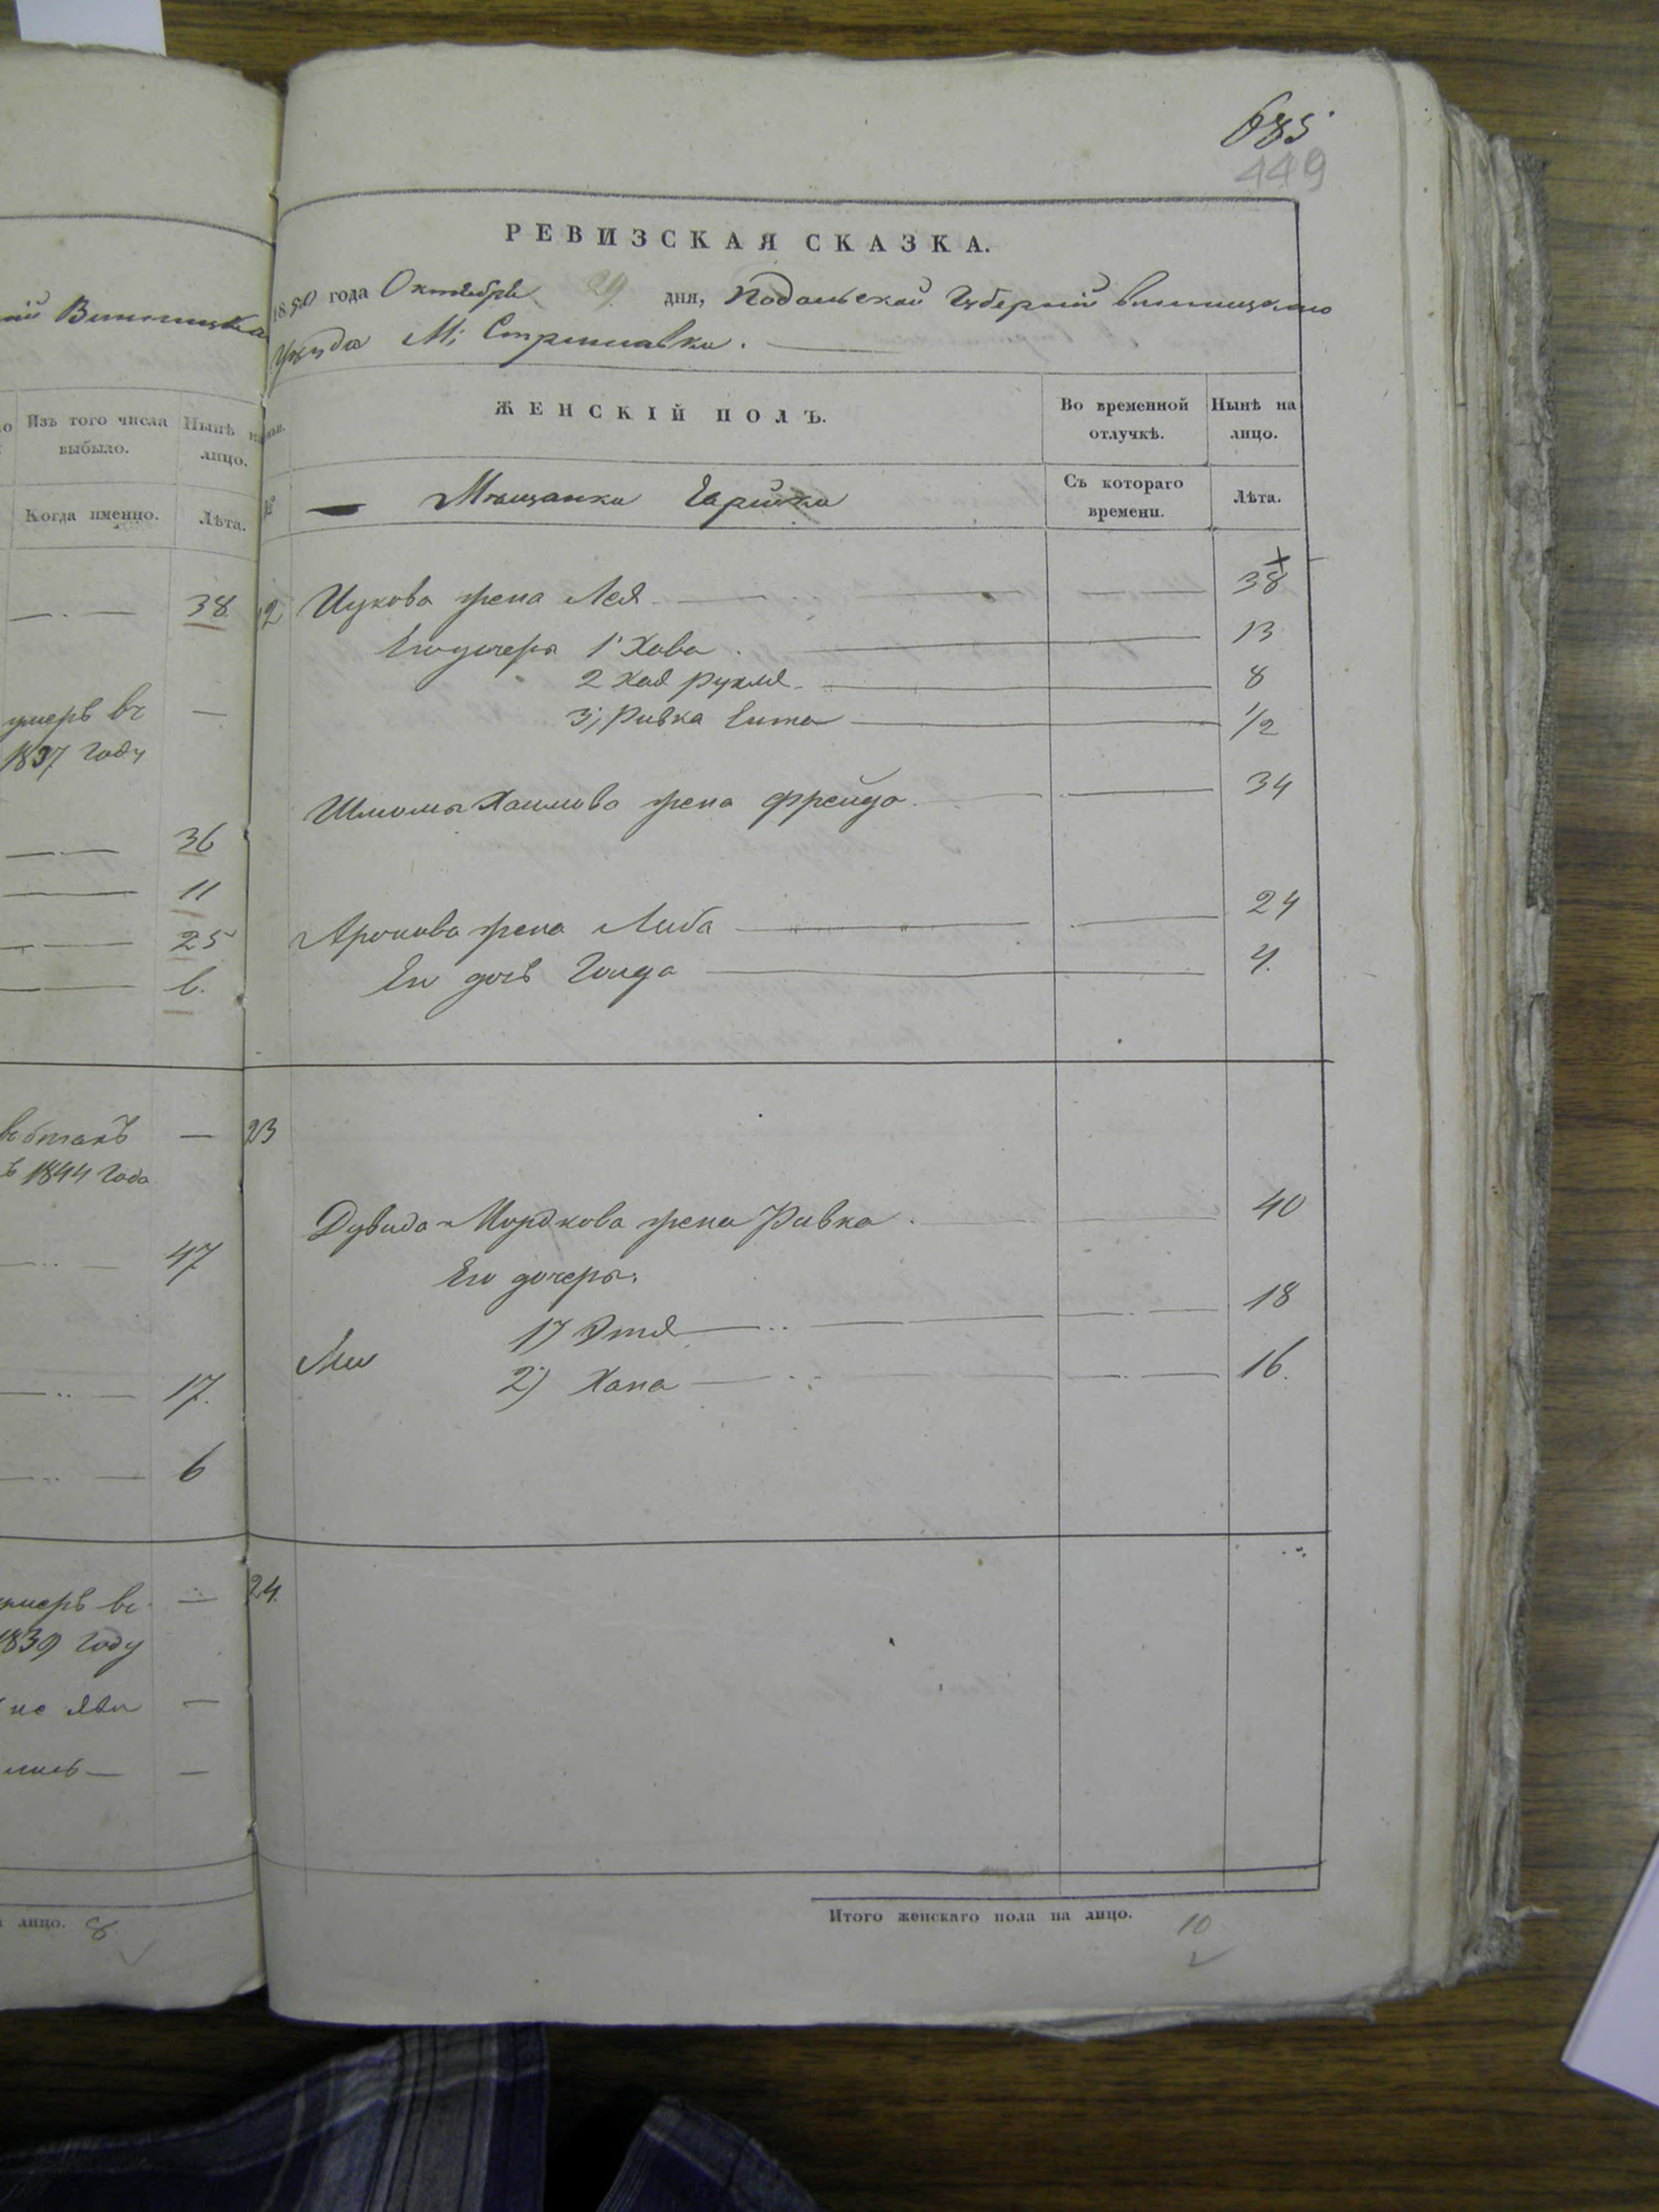 685
449
РЕВИЗСКАЯ СКАЗКА.
1850 года Октября 29 дня, Подольской Губерніи Винницкаго
Уѣзда М: Стрижавки.
ЖЕНСКІЙ ПОЛЪ.
Во временной отлучкѣ.
Нынѣ на лицо.
Мѣщанки Еврейки
Съ котораго времени.
Лѣта.
Ицкова жена Лея 38
Его дочери 1 Хава 13
2 Хая Рухля 8
3; Ривка Еита 1/2
Шлiома Хаимова жена Фрейда 34
Аронова жена Либа 24
Его дочь Голда 4.
23
Дувида-Мордкова жена Ривка 40
Его дочери:
1) Этя 18
2) Хана 16.
24.
Итого женскаго пола на лицо. 10
Изъ того числа выбыло.
Нынѣ на лицо.
Когда именно.
Лѣта.
38
умеръ въ —
1837 году
36
11
25
6.
—
1844 года
47
17.
6
умеръ въ —
1839 году
не яви —
лись —
лицо. 8